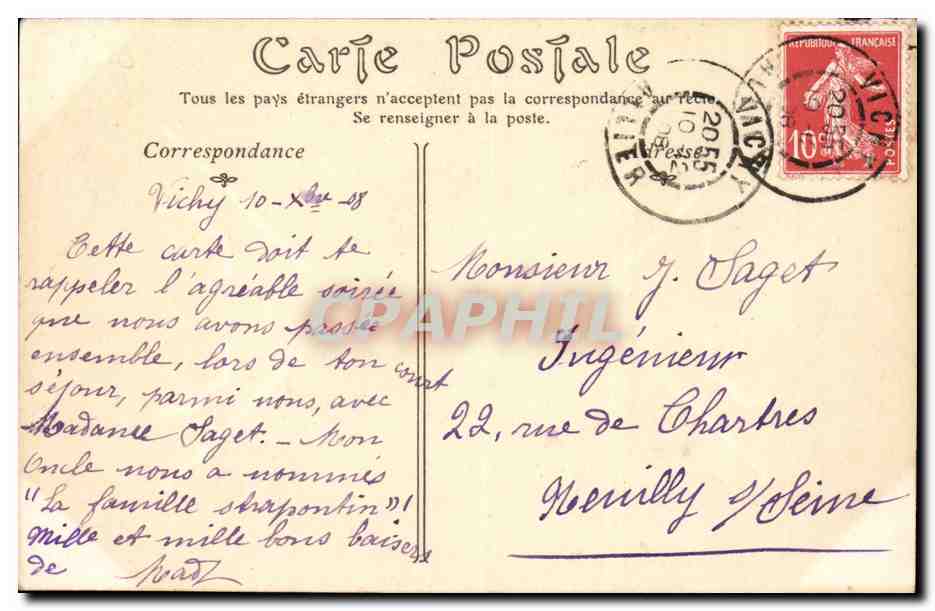 Carte Postale
Tous les pays étrangers n'acceptent pas la correspondance au recto.
Se renseigner à la poste.
Correspondance
Adresse
REPUBLIQUE FRANÇAISE
10c
POSTES
VICHY
20 55
10
08
ALLIER
VICHY
20 55
Vichy 10-Xbre-08
Cette carte doit te
rappeler l'agréable soirée
que nous avons passée
ensemble, lors de ton court
séjour, parmi nous, avec
Madame Saget. - Mon
Oncle nous a nommés
"La famille strapontin"!
Mille et mille bons baisers
de Mad
Monsieur J. Saget
Ingénieur
22, rue de Chartres
Neuilly s/Seine
CPAPHIL